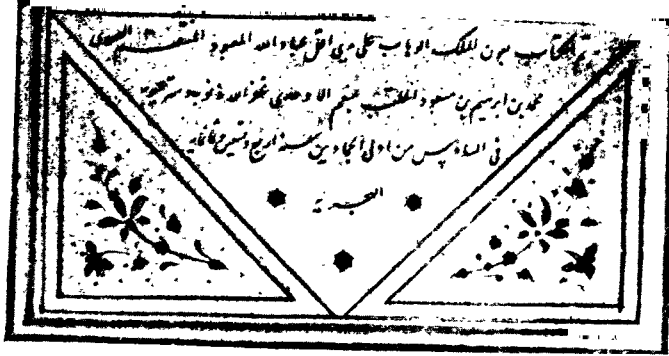 تم الكتاب بعون الملك الوهاب على يدي اقل عباد الله المعبود
محمد بن ابرهيم بن مسعود الملقب بمنعم الاوحدي غفر الله ذنوبه و ستر عيوبه
في السادس من اولى الجمادين سنة اربع و تسعين و ثمانمايه
الهجرية